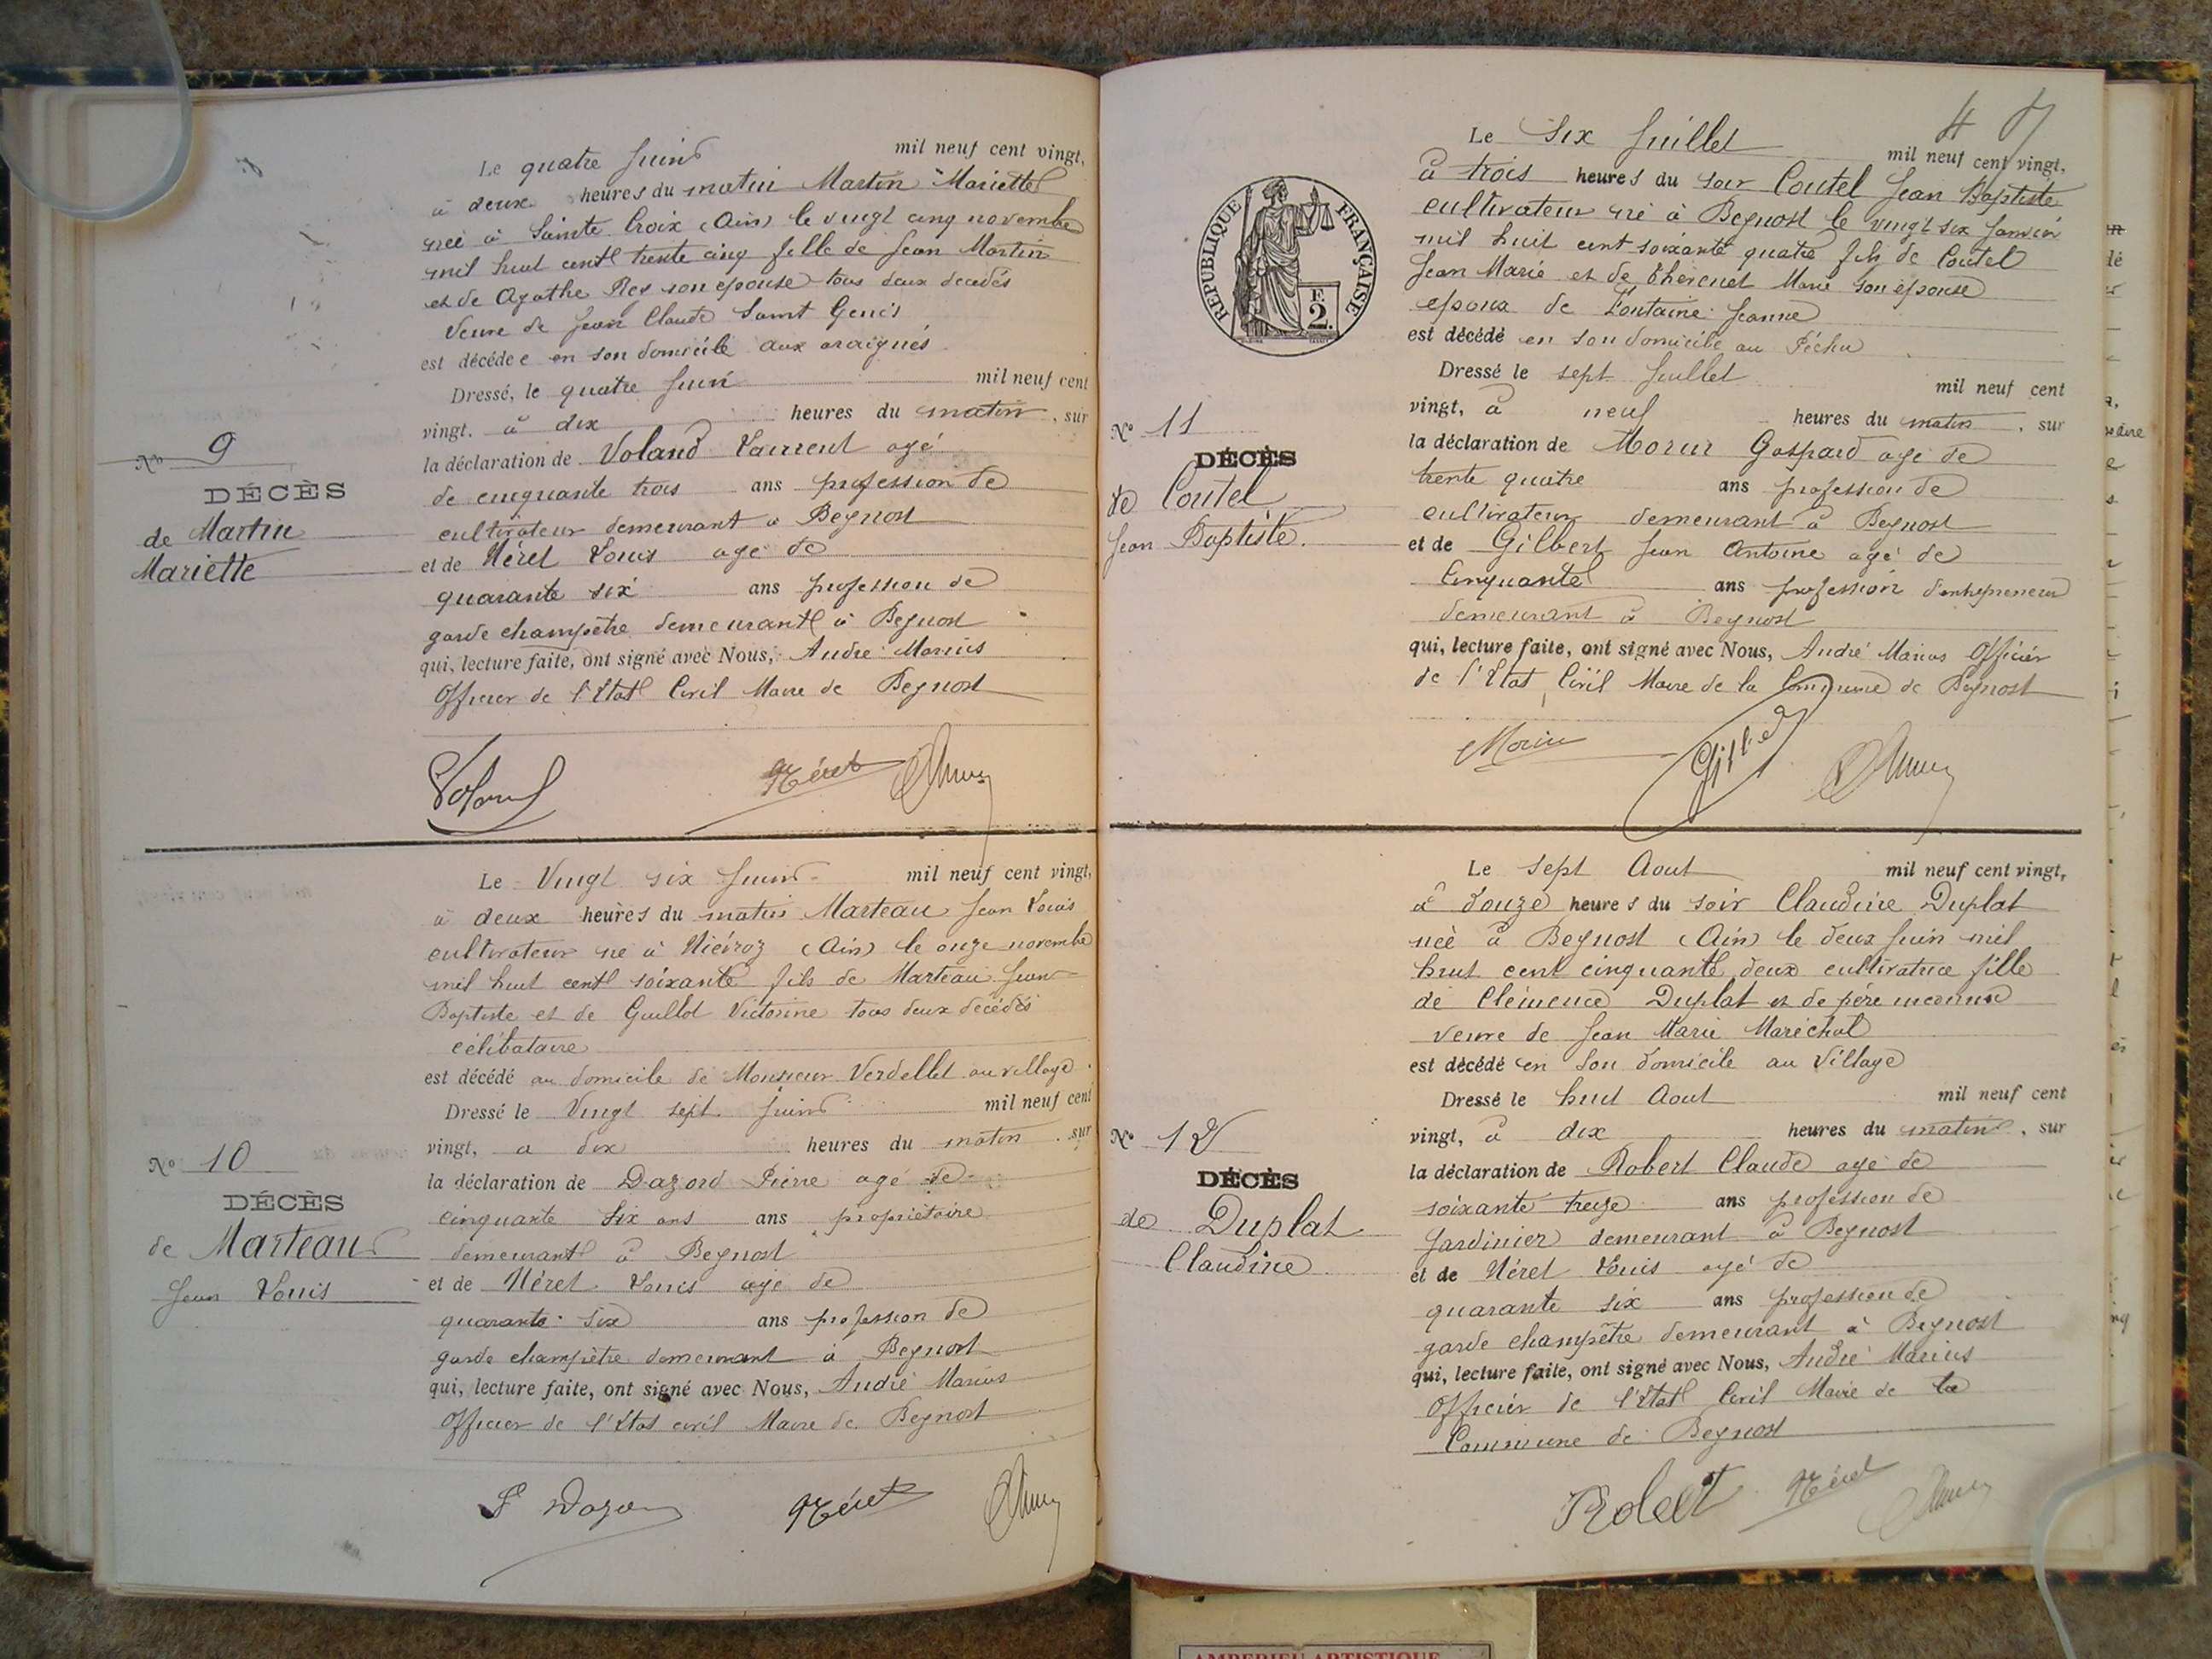 Le quatre Juin mil neuf cent vingt,
à deux heures du matin Martin Mariette
née à Sainte Croix (Ain) le vingt cinq novembre
mil huit cent trente cinq fille de Jean Martin
et de Agathe Rey son épouse tous deux décédés
Veuve de Jean Claude Saint Genis
est décédée en son domicile aux araignés
Dressé, le quatre Juin mil neuf cent
vingt, à dix heures du matin, sur
la déclaration de Voland Laurent agé
de cinquante trois ans profession de
cultivateur demeurant à Beynost
et de Néret Louis agé de
quarante six ans profession de
garde champêtre demeurant à Beynost
qui, lecture faite, ont signé avec Nous, André Marius
Officier de l'Etat Civil Maire de Beynost
No 9
DÉCÈS
de Martin
Mariette
Voland Néret
Le Vingt six Juin mil neuf cent vingt,
à deux heures du matin Marteau Jean Louis
cultivateur né à Niévroz (Ain) le onze novembre
mil huit cent soixante fils de Marteau Jean
Baptiste et de Guillot Victorine tous deux décédés
célibataire
est décédé au domicile de Monsieur Verdellet au village
Dressé le Vingt sept Juin mil neuf cent
vingt, a dix heures du matin, sur
la déclaration de Dazord Pierre agé de
cinquante six ans ans propriétaire
demeurant à Beynost
et de Néret Louis agé de
quarante six ans profession de
garde champêtre demeurant à Beynost
qui, lecture faite, ont signé avec Nous, André Marius
Officier de l'Etat civil Maire de Beynost
No 10
DÉCÈS
de Marteau
Jean Louis
Néret
Le Six Juillet mil neuf cent vingt,
à trois heures du soir Coutel Jean Baptiste
cultivateur né à Beynost le vingt six Janvier
mil huit cent soixante quatre fils de Coutel
Jean Marie et de Thévenet Marie son épouse
époux de Fontaine Jeanne
est décédé en son domicile au Péchu
Dressé le sept Juillet mil neuf cent
vingt, à neuf heures du matin, sur
la déclaration de Morin Gaspard agé de
trente quatre ans profession de
cultivateur demeurant à Beynost
et de Gilbert Jean Antoine agé de
Cinquante ans profession d'entrepreneur
demeurant à Beynost
qui, lecture faite, ont signé avec Nous, André Marius Officier
de l'Etat Civil Maire de la Commune de Beynost
REPUBLIQUE FRANÇAISE
F.
2.
No 11
DÉCÈS
de Coutel
Jean Baptiste.
Morin
Le sept Aout mil neuf cent vingt,
à douze heures du soir Claudine Duplat
née à Beynost (Ain) le deux Juin mil
huit cent cinquante deux cultivatrice fille
de Clémence Duplat et de père inconnu
veuve de Jean Marie Maréchal
est décédé en son domicile au Village
Dressé le huit Aout mil neuf cent
vingt, à dix heures du matin, sur
la déclaration de Robert Claude agé de
soixante treize ans profession de
Jardinier demeurant à Beynost
et de Néret Louis agé de
quarante six ans profession de
garde champêtre demeurant à Beynost
qui, lecture faite, ont signé avec Nous, André Marius
Officier de l'Etat Civil Maire de la
Commune de Beynost
No 12
DÉCÈS
de Duplat
Claudine
Robert Néret
AMBERIEU ARTISTIQUE